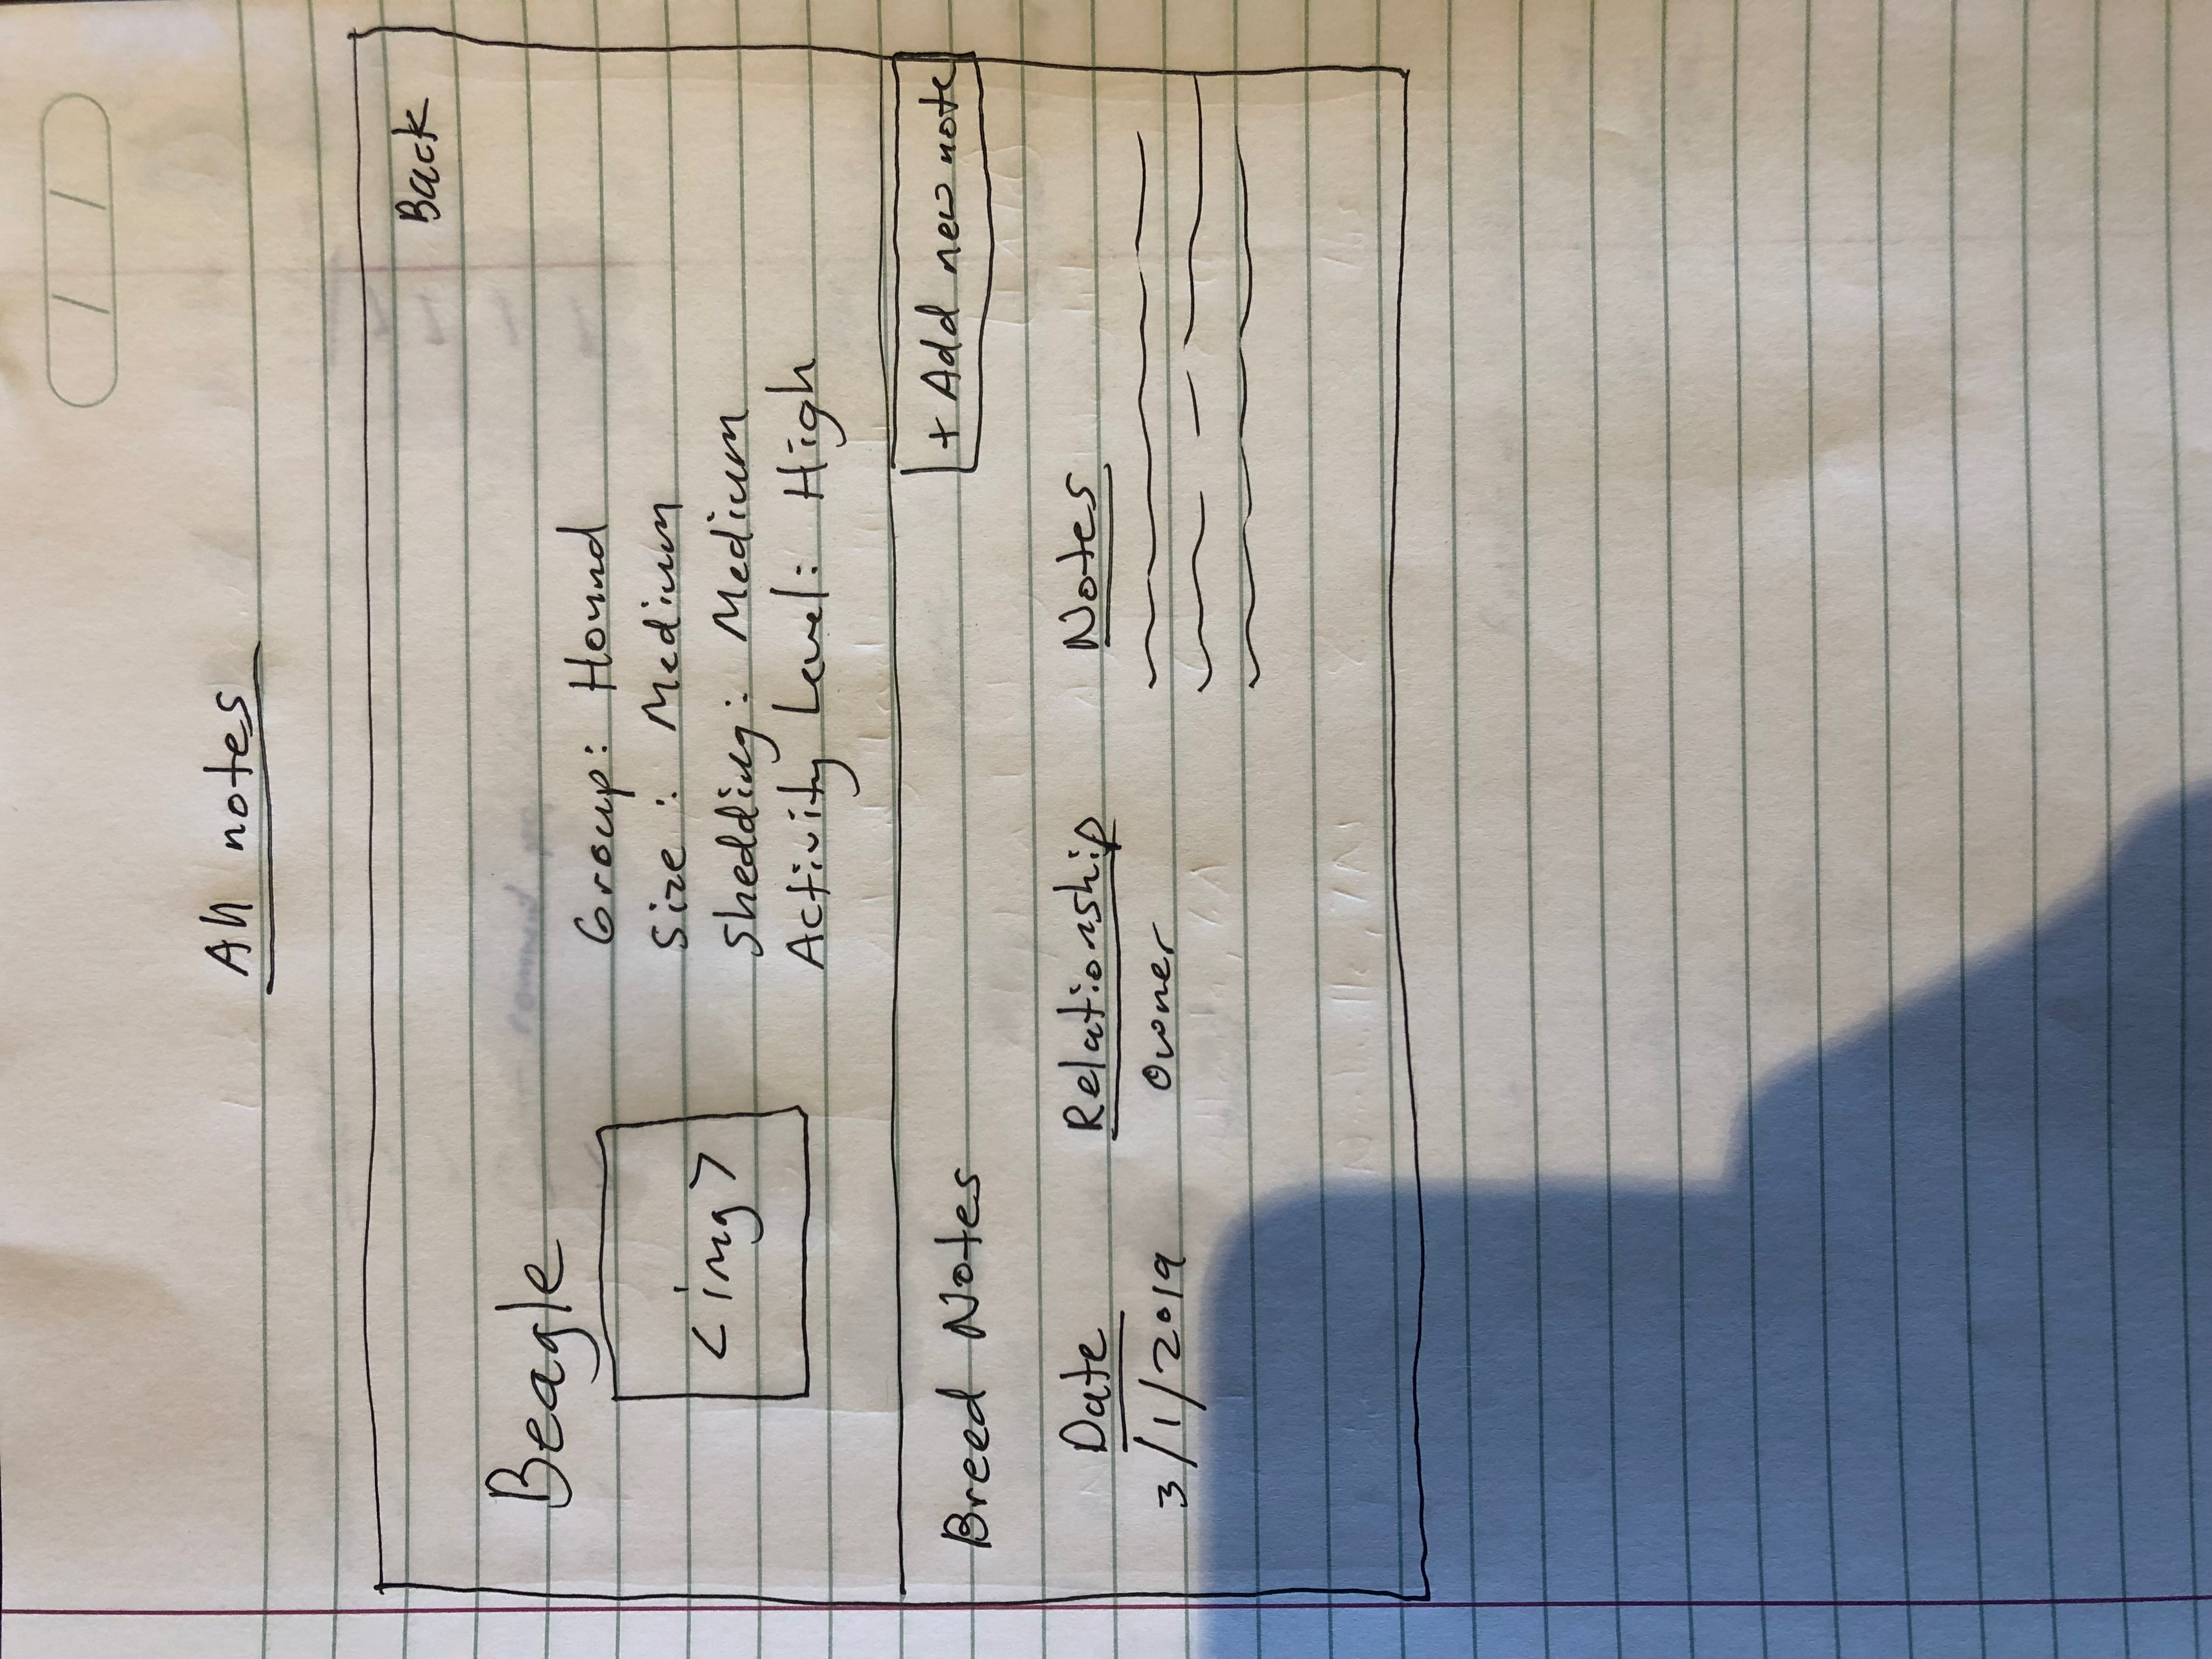 All notes
Back
Beagle
<img>
Group: Hound
Size : Medium
Shedding: Medium
Activity Level: High
Breed Notes
+ Add new note
Date Relationship Notes
3/1/2019 Owner